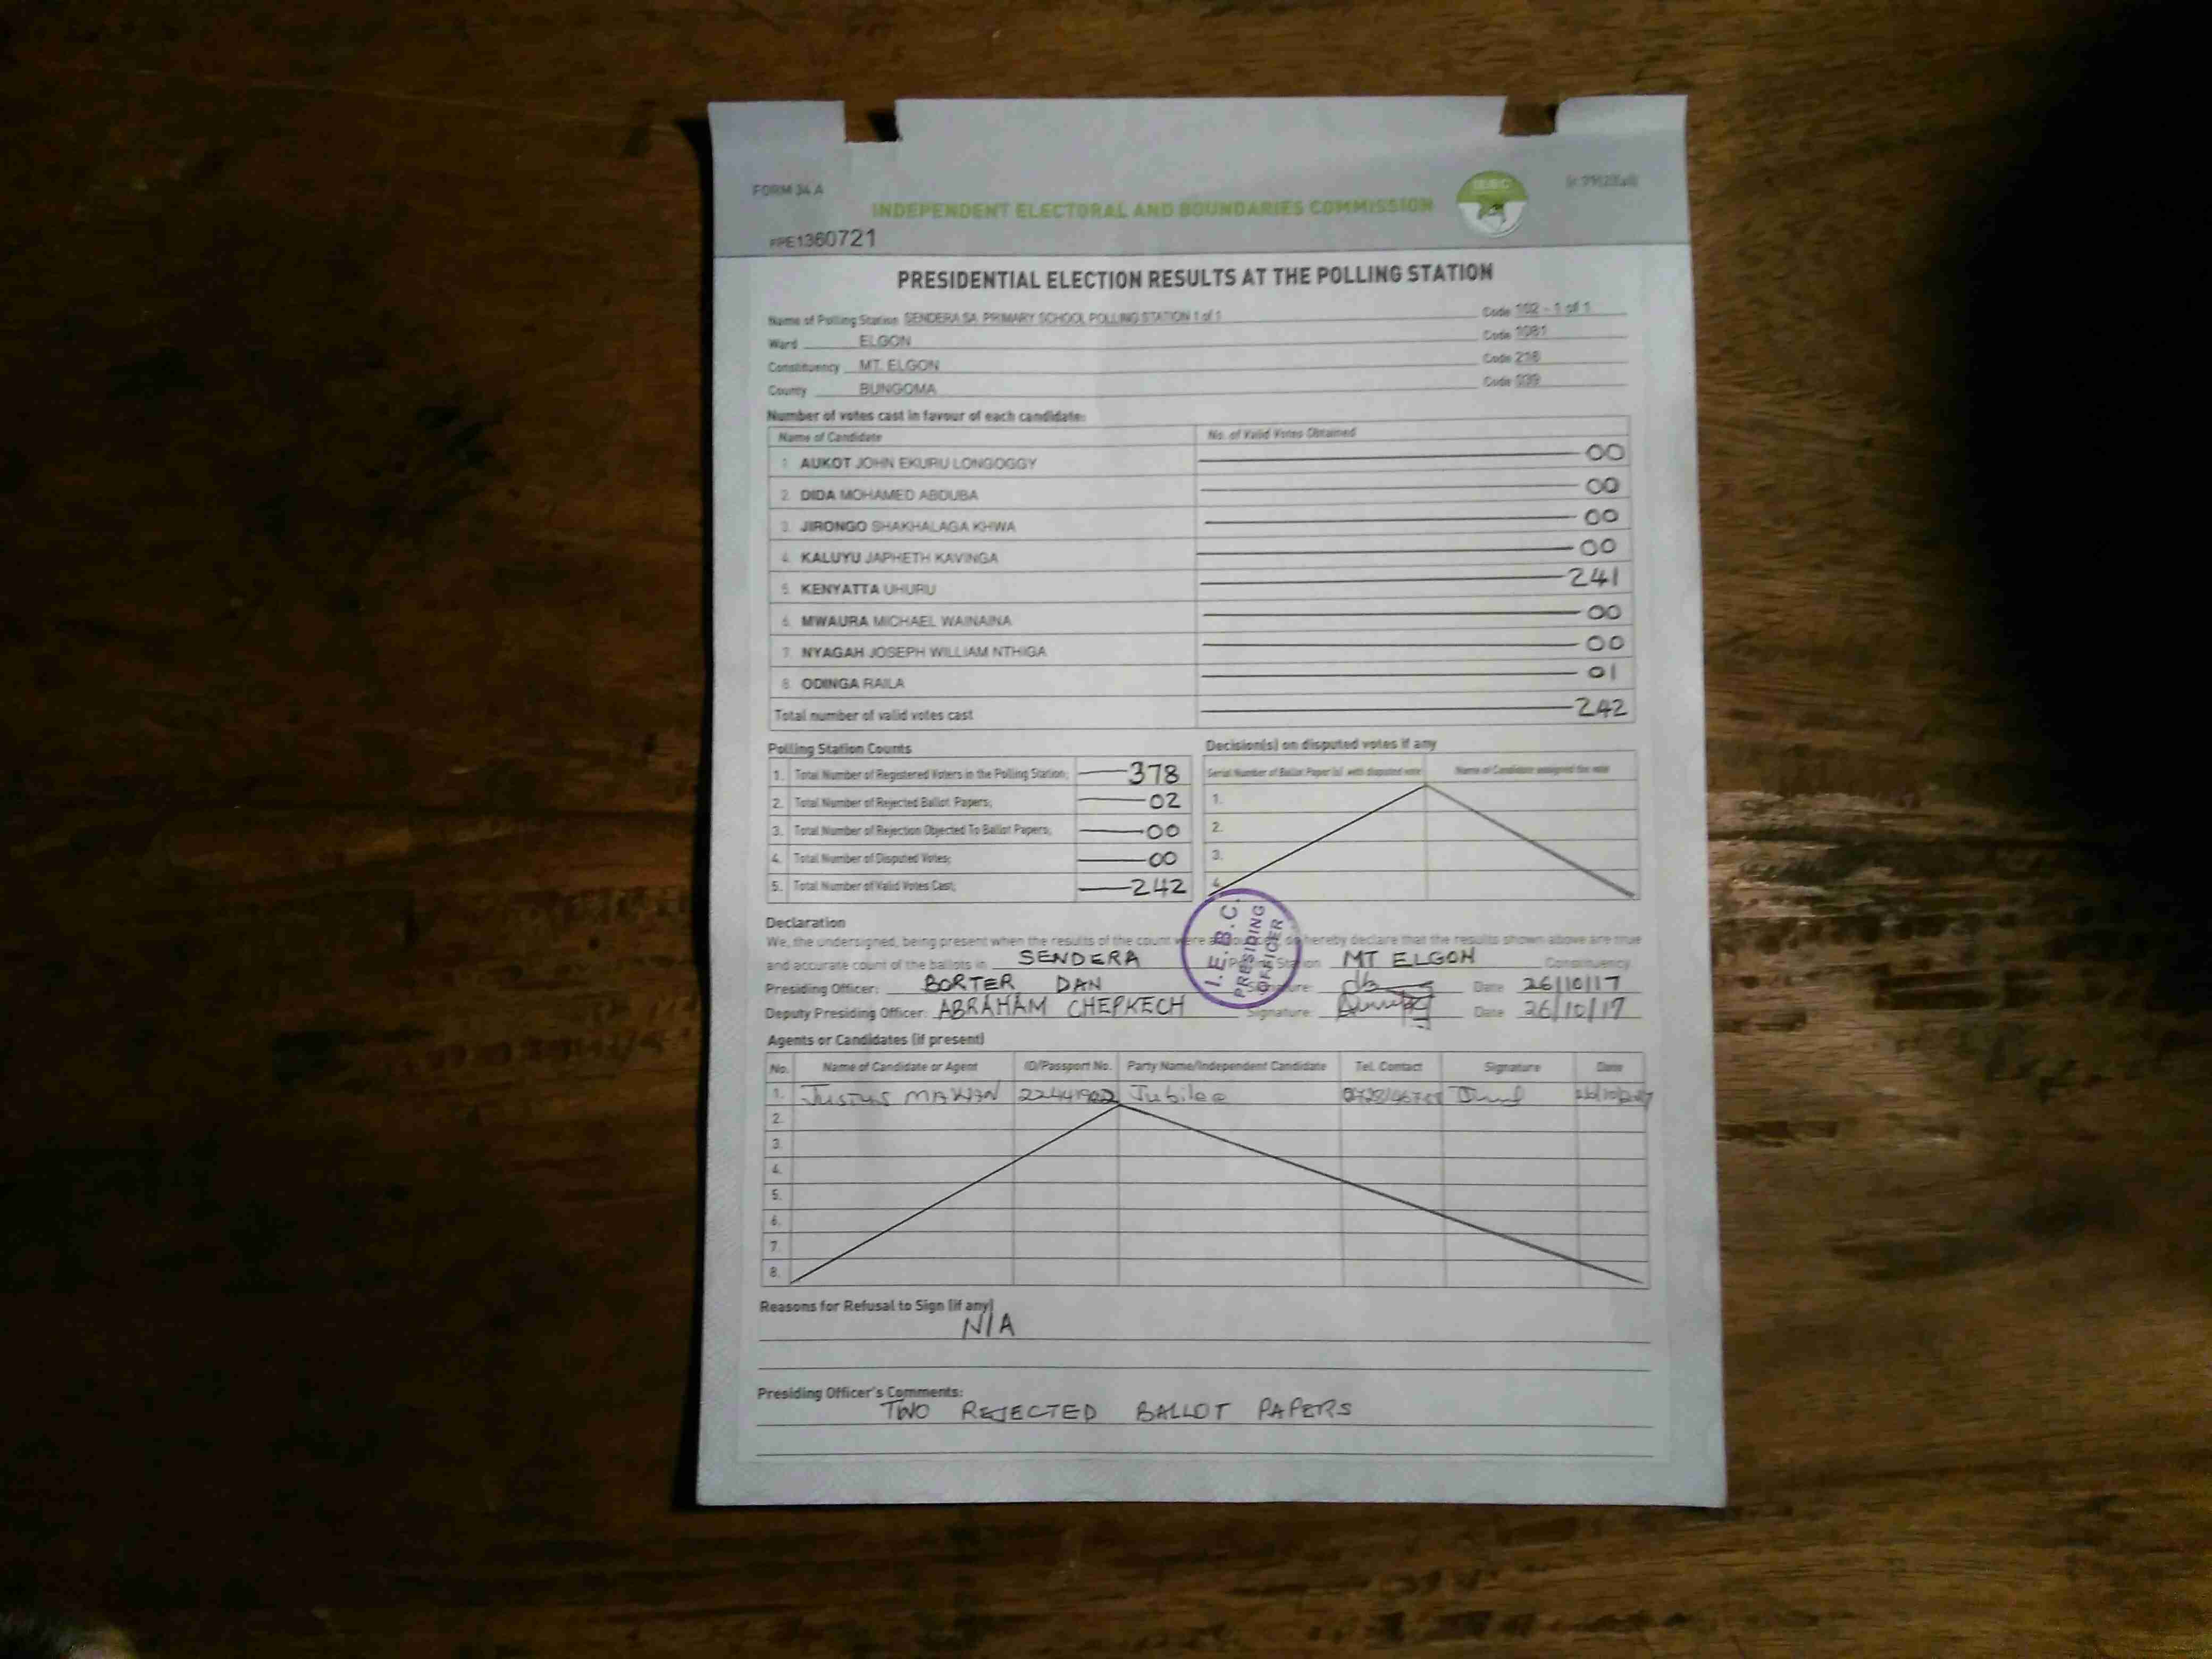 FORM 34 A
INDEPENDENT ELECTORAL AND BOUNDARIES COMMISSION
IEBC
#PE1360721
PRESIDENTIAL ELECTION RESULTS AT THE POLLING STATION
Name of Polling Station SENDERA SA PRIMARY SCHOOL POLLING STATION 1 of 1 Code 102 - 1 of 1
Ward ELGON Code 1081
Constituency MT. ELGON Code 216
County BUNGOMA Code 039
Number of votes cast in favour of each candidate:
Name of Candidate No. of Valid Votes Obtained
1. AUKOT JOHN EKURU LONGOGGY 00
2. DIDA MOHAMED ABDUBA 00
3. JIRONGO SHAKHALAGA KHWA 00
4. KALUYU JAPHETH KAVINGA 00
5. KENYATTA UHURU 241
6. MWAURA MICHAEL WAINAINA 00
7. NYAGAH JOSEPH WILLIAM NTHIGA 00
8. ODINGA RAILA 01
Total number of valid votes cast 242
Polling Station Counts
1. Total Number of Registered Voters in the Polling Station; 378
2. Total Number of Rejected Ballot Papers; 02
3. Total Number of Rejection Objected To Ballot Papers; 00
4. Total Number of Disputed Votes; 00
5. Total Number of Valid Votes Cast; 242
Decision(s) on disputed votes if any
Serial Number of Ballot Paper (s) with disputed vote Name of Candidate assigned the vote
1.
2.
3.
4.
I.E.B.C.
PRESIDING
OFFICER
Declaration
We, the undersigned, being present when the results of the count were do hereby declare that the results shown above are true
and accurate count of the ballots in SENDERA Station MT ELGON Constituency
Presiding Officer: BORTER DAN Signature: Date 26/10/17
Deputy Presiding Officer: ABRAHAM CHEPKECH Signature: Date 26/10/17
Agents or Candidates (if present)
No. Name of Candidate or Agent ID/Passport No. Party Name/Independent Candidate Tel. Contact Signature Date
1. Jubilee
2.
3.
4.
5.
6.
7.
8.
Reasons for Refusal to Sign (if any)
N/A
Presiding Officer's Comments:
TWO REJECTED BALLOT PAPERS